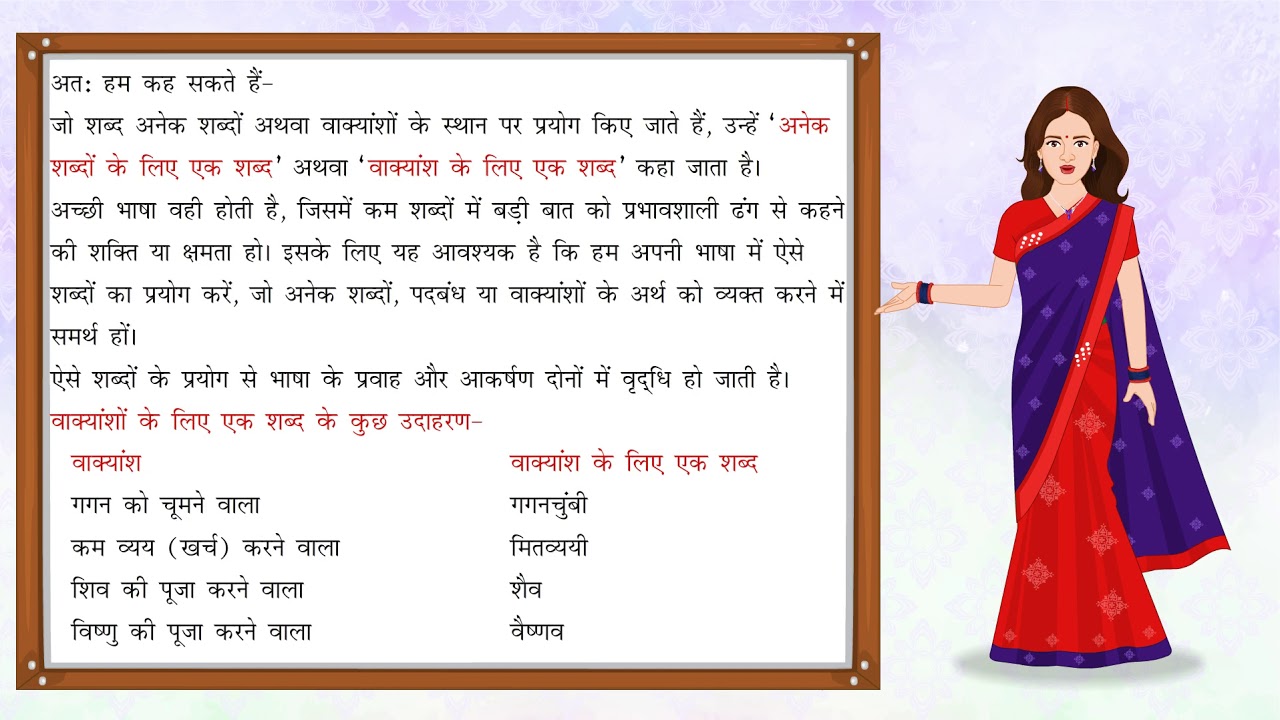 अत: हम कह सकते हैं-
जो शब्द अनेक शब्दों अथवा वाक्यांशों के स्थान पर प्रयोग किए जाते हैं, उन्हें ‘अनेक
शब्दों के लिए एक शब्द’ अथवा ‘वाक्यांश के लिए एक शब्द’ कहा जाता है।
अच्छी भाषा वही होती है, जिसमें कम शब्दों में बड़ी बात को प्रभावशाली ढंग से कहने
की शक्ति या क्षमता हो। इसके लिए यह आवश्यक है कि हम अपनी भाषा में ऐसे
शब्दों का प्रयोग करें, जो अनेक शब्दों, पदबंध या वाक्यांशों के अर्थ को व्यक्त करने में
समर्थ हों।
ऐसे शब्दों के प्रयोग से भाषा के प्रवाह और आकर्षण दोनों में वृद्‌धि हो जाती है।
वाक्यांशों के लिए एक शब्द के कुछ उदाहरण-
वाक्यांश वाक्यांश के लिए एक शब्द
गगन को चूमने वाला गगनचुंबी
कम व्यय (खर्च) करने वाला मितव्ययी
शिव की पूजा करने वाला शैव
विष्णु की पूजा करने वाला वैष्णव